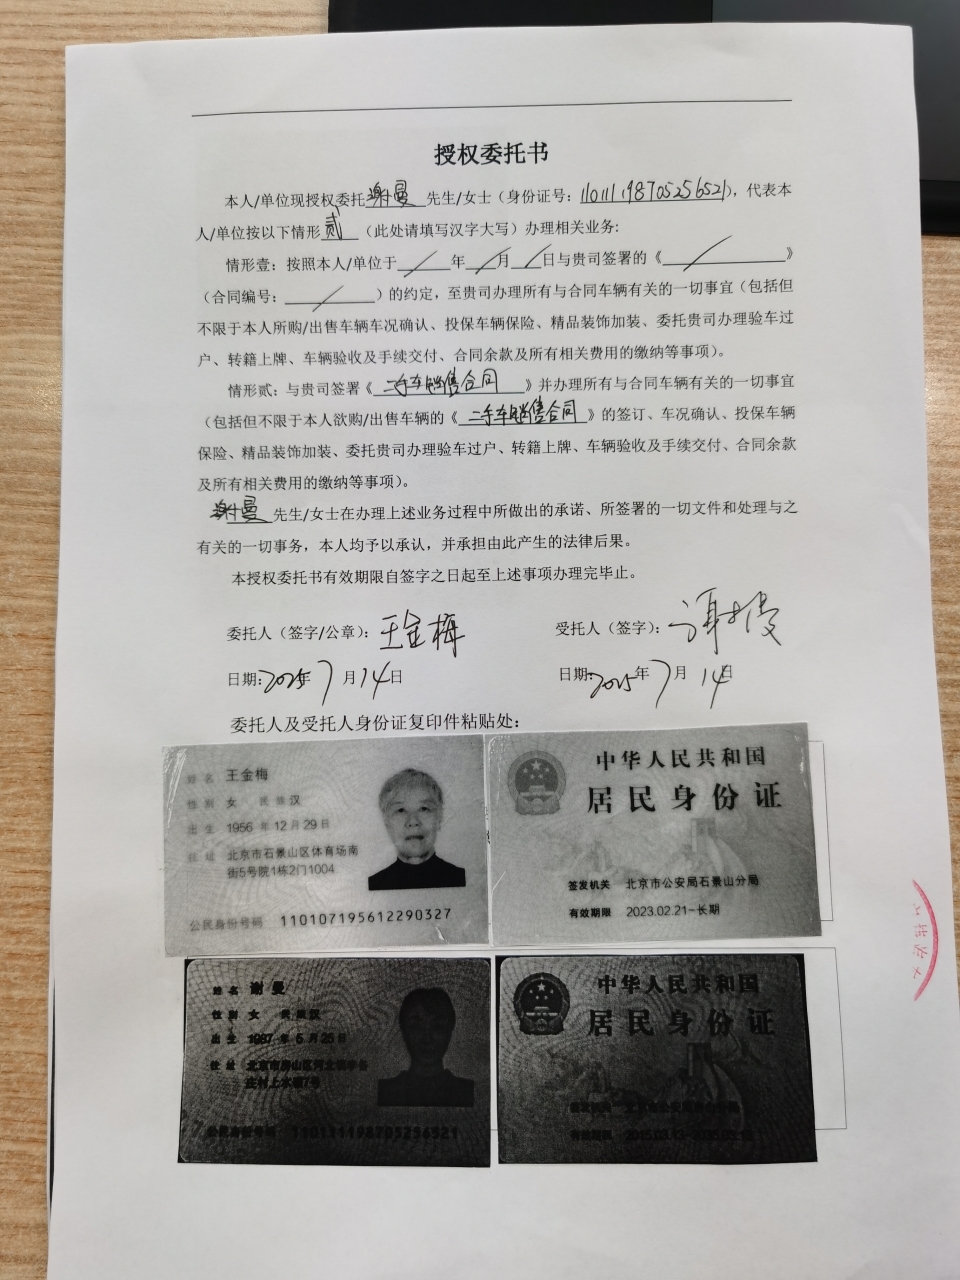 授权委托书
本人/单位现授权委托谢曼先生/女士（身份证号：110111198705256521），代表本
人/单位按以下情形贰（此处请填写汉字大写）办理相关业务:
情形壹：按照本人/单位于／年／月／日与贵司签署的《／》
（合同编号：／）的约定，至贵司办理所有与合同车辆有关的一切事宜（包括但
不限于本人所购/出售车辆车况确认、投保车辆保险、精品装饰加装、委托贵司办理验车过
户、转籍上牌、车辆验收及手续交付、合同余款及所有相关费用的缴纳等事项）。
情形贰：与贵司签署《二手车销售合同》并办理所有与合同车辆有关的一切事宜
（包括但不限于本人欲购/出售车辆的《二手车销售合同》的签订、车况确认、投保车辆
保险、精品装饰加装、委托贵司办理验车过户、转籍上牌、车辆验收及手续交付、合同余款
及所有相关费用的缴纳等事项）。
谢曼先生/女士在办理上述业务过程中所做出的承诺、所签署的一切文件和处理与之
有关的一切事务，本人均予以承认，并承担由此产生的法律后果。
本授权委托书有效期限自签字之日起至上述事项办理完毕止。
委托人（签字/公章）：王金梅 受托人（签字）：谢曼
日期:2025年7月14日 日期:2025年7月14日
委托人及受托人身份证复印件粘贴处：
姓名 王金梅
性别 女 民族 汉
出生 1956 年 12 月 29 日
住址 北京市石景山区体育场南
街5号院1栋2门1004
公民身份号码 110107195612290327
中华人民共和国
居民身份证
签发机关 北京市公安局石景山分局
有效期限 2023.02.21-长期
姓名 谢曼
性别 女 民族 汉
出生 1987 年 5 月 25 日
住址 北京市房山区河北镇
庄村上水7号
公民身份号码 110111198705256521
中华人民共和国
居民身份证
签发机关 北京市公安局房山分局
有效期限